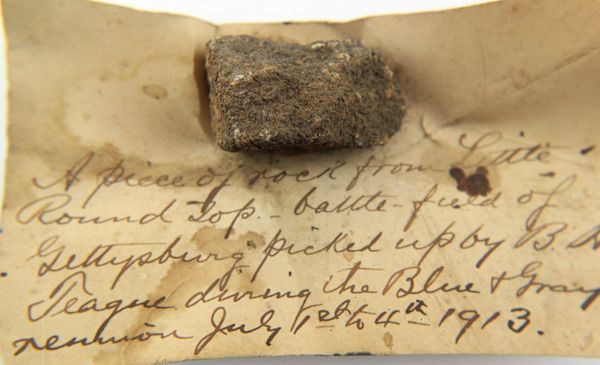 A piece of rock from Little
Round Top. - battle-field of
Gettysburg picked up by B. H
Teague during the Blue & Gray
reunion July 1st to 4th 1913.